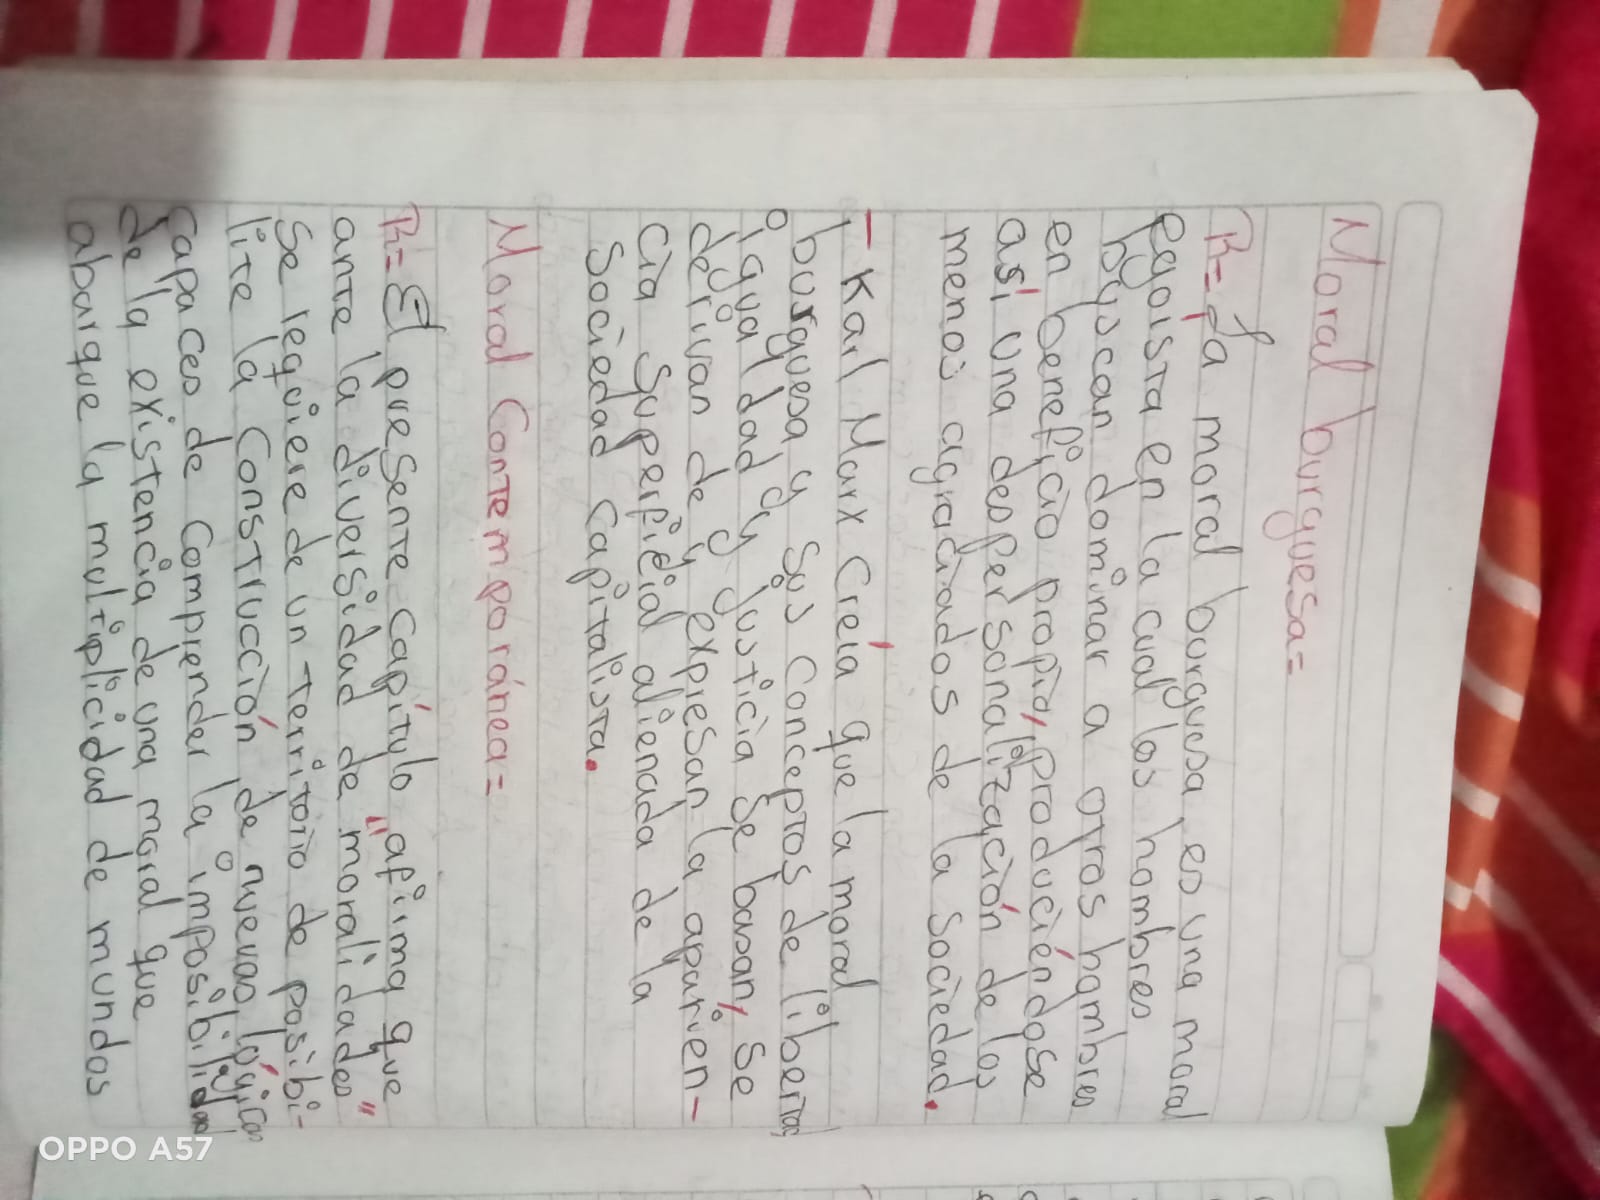 Moral burguesa=
R= La moral burguesa, es una moral
egoista en la cual los hombres
buscan dominar a otros hombres
en beneficio propio, produciéndose
así, una despersonalización de los
menos agraciados de la sociedad.
- Karl Marx Creía que la moral
burguesa y sus Conceptos de libertad
igualdad y justicia se basan, se
derivan de y expresan la aparien-
cia superficial alienada de la
Sociedad Capitalista.
Moral Contemporánea=
R= El presente Capítulo afirma que
ante la diversidad de "moralidades"
Se requiere de un territorio de posibi-
lite la Construcción de nuevas lógicas
capaces de Comprender la imposibilidad
de la existencia de una moral que
abarque la multiplicidad de mundos
OPPO A57